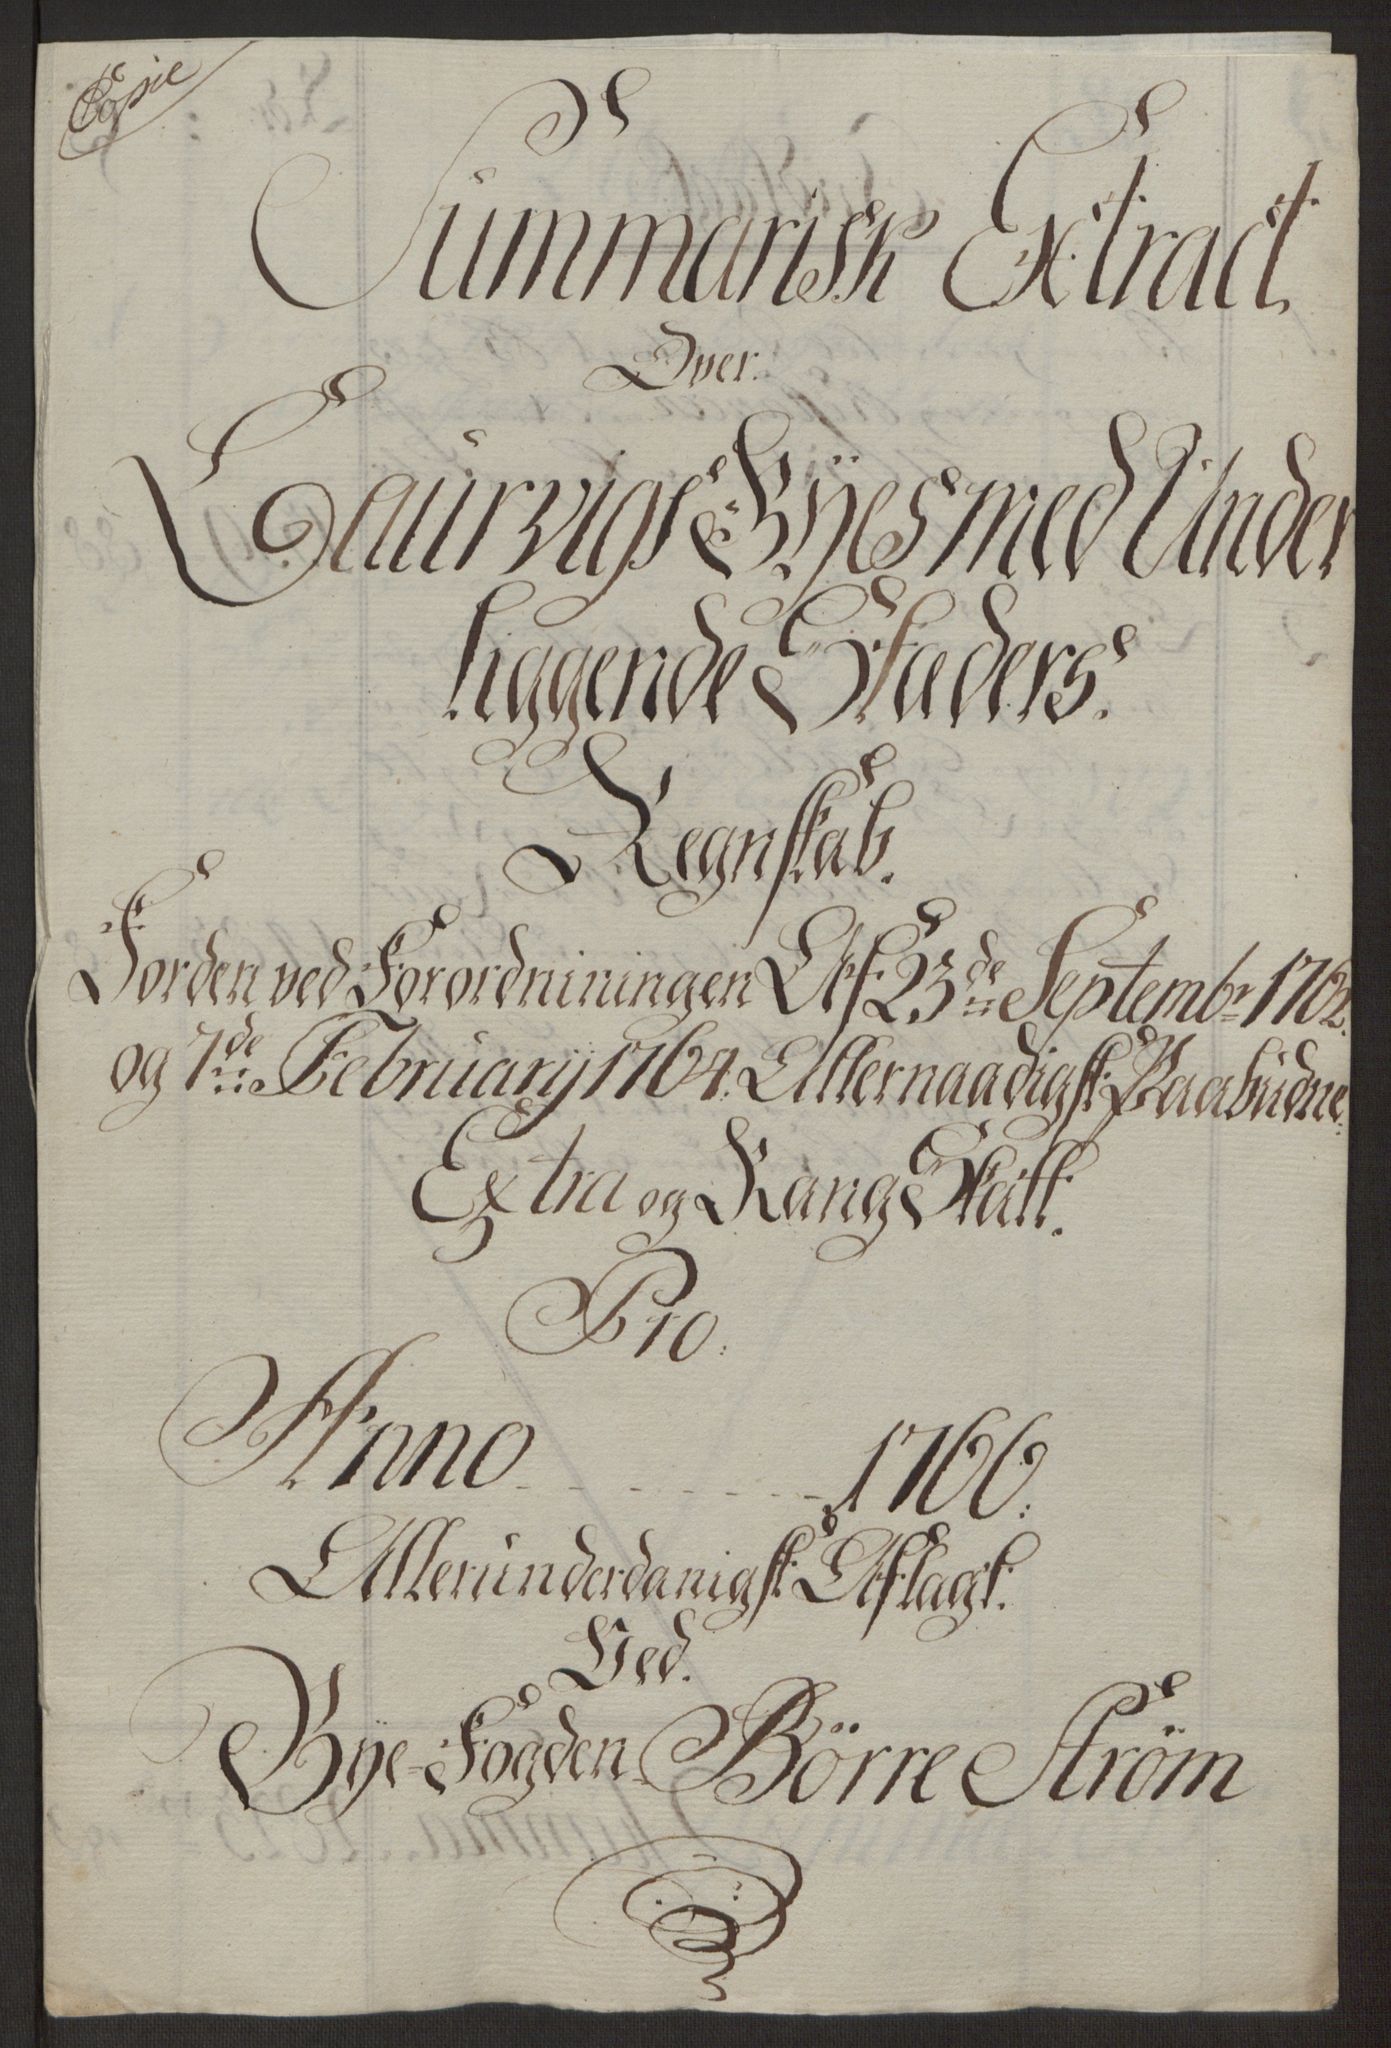 Copie
Summarisk Extract
Over
Laurvigs Byes med Under
liggende Stæders.
Regnskab.
For den ved Forordniningen Af 23de Septembr 1762.
og 7de February 1764. Allernaadigst Paabudne
Extra og Rang Skatt.
Pro.
Anno - - - - - - - 1766.
Allerunderdanigst Aflagt.
Ved.
Bye-Fogden Börre Ström